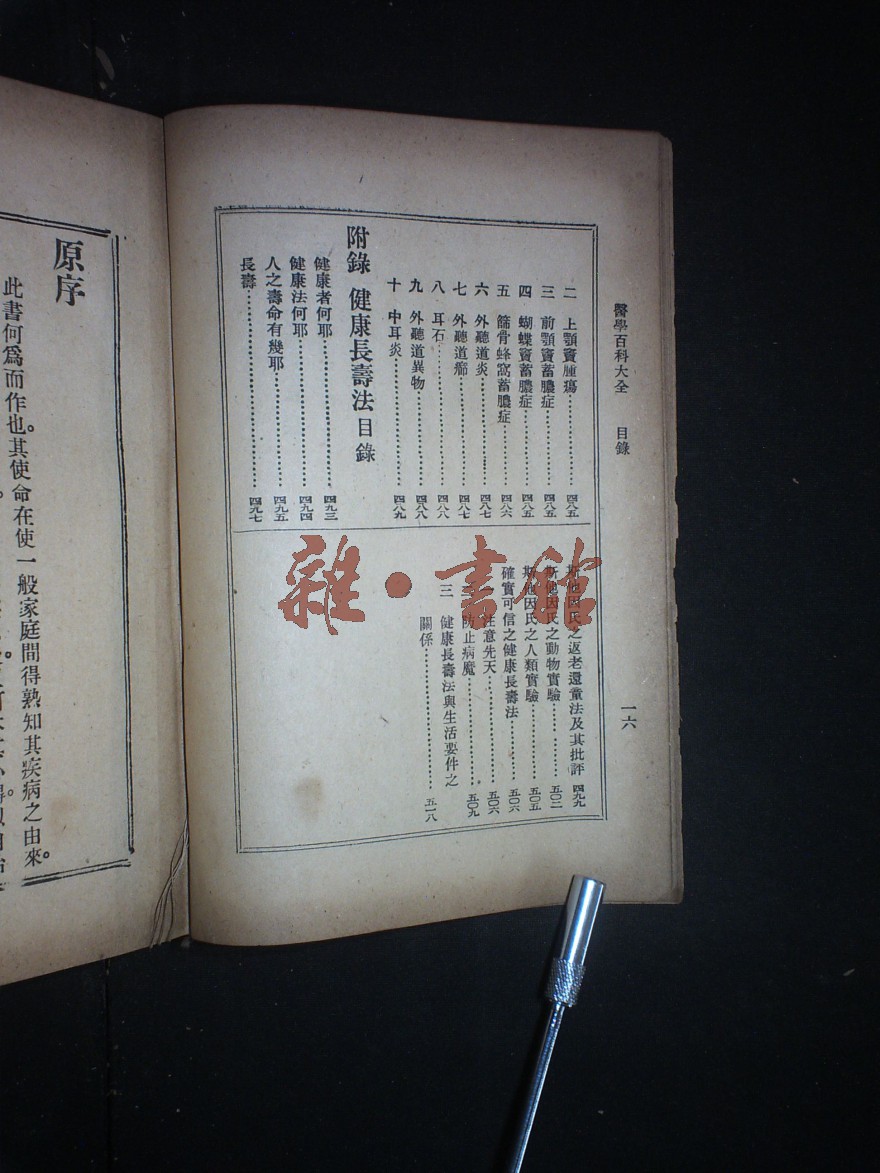 醫學百科大全　目錄
一六
二　上顎竇腫瘍………四八五
三　前顎竇蓄膿症………四八五
四　蝴蝶竇蓄膿症………四八五
五　篩骨蜂窩蓄膿症………四八六
六　外聽道炎………四八七
七　外聽道癤………四八七
八　耳石………四八八
九　外聽道異物………四八八
十　中耳炎………四八九
附錄　健康長壽法目錄
健康者何耶………四九三
健康法何耶………四九四
人之壽命有幾耶………四九五
長壽………四九七
斯他因氏之返老還童法及其批評　四九九
斯他因氏之動物實驗………五〇二
斯他因氏之人類實驗………五〇五
確實可信之健康長壽法………五〇六
注意先天………五〇六
防止病魔………五〇九
三　健康長壽法與生活要件之
關係………五一八
雜·書館
原序
此書何爲而作也。其使命在使一般家庭間得熟知其疾病之由來。